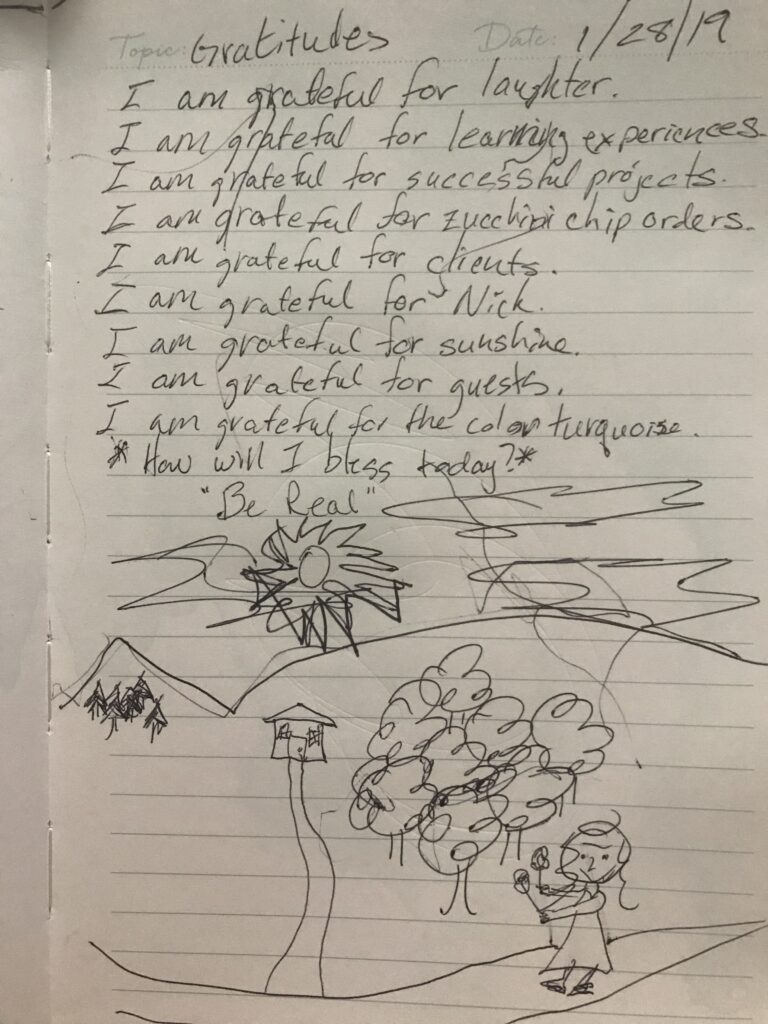 Topic: Gratitudes Date: 1/28/19
I am grateful for laughter.
I am grateful for learning experiences.
I am grateful for successful projects.
I am grateful for zucchini chip orders.
I am grateful for clients.
I am grateful for Nick.
I am grateful for sunshine.
I am grateful for guests.
I am grateful for the color turquoise.
*How will I bless today?*
"Be Real"